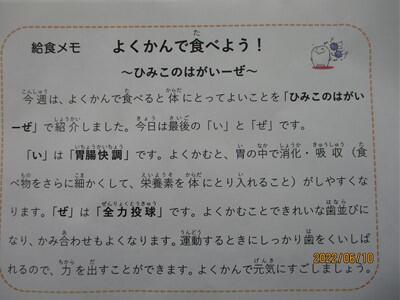 給食メモ よくかんで食べよう！
～ひみこのはがいーぜ～
今週は、よくかんで食べると体にとってよいことを「ひみこのはがい
ーぜ」で紹介しました。今日は最後の「い」と「ぜ」です。
「い」は「胃腸快調」です。よくかむと、胃の中で消化・吸収（食
べ物をさらに細かくして、栄養素を体にとり入れること）がしやすくな
ります。「ぜ」は「全力投球」です。よくかむことできれいな歯並びに
なり、かみ合わせもよくなります。運動するときにしっかり歯をくいしば
れるので、力を出すことができます。よくかんで元気にすごしましょう。
2022/06/10